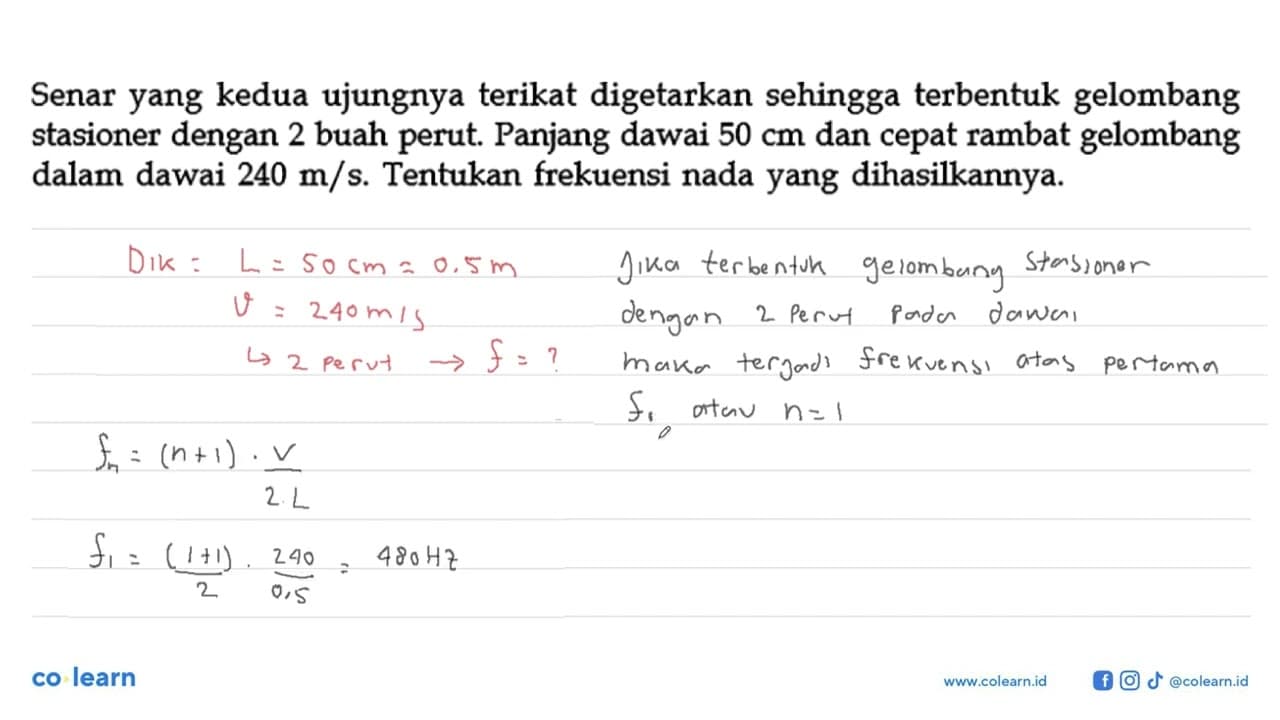 Senar yang kedua ujungnya terikat digetarkan sehingga terbentuk gelombang
stasioner dengan 2 buah perut. Panjang dawai 50 cm dan cepat rambat gelombang
dalam dawai 240 m/s. Tentukan frekuensi nada yang dihasilkannya.
Dik : L = 50 cm = 0.5 m
V = 240 m/s
↳ 2 perut → f = ?
Jika terbentuk gelombang stasioner
dengan 2 perut pada dawai
maka terjadi frekuensi atas pertama
f₁ atau n = 1
fₙ = (n+1) . V
2.L
f₁ = (1+1) . 240 = 480 Hz
2 0,5
co learn
www.colearn.id @colearn.id